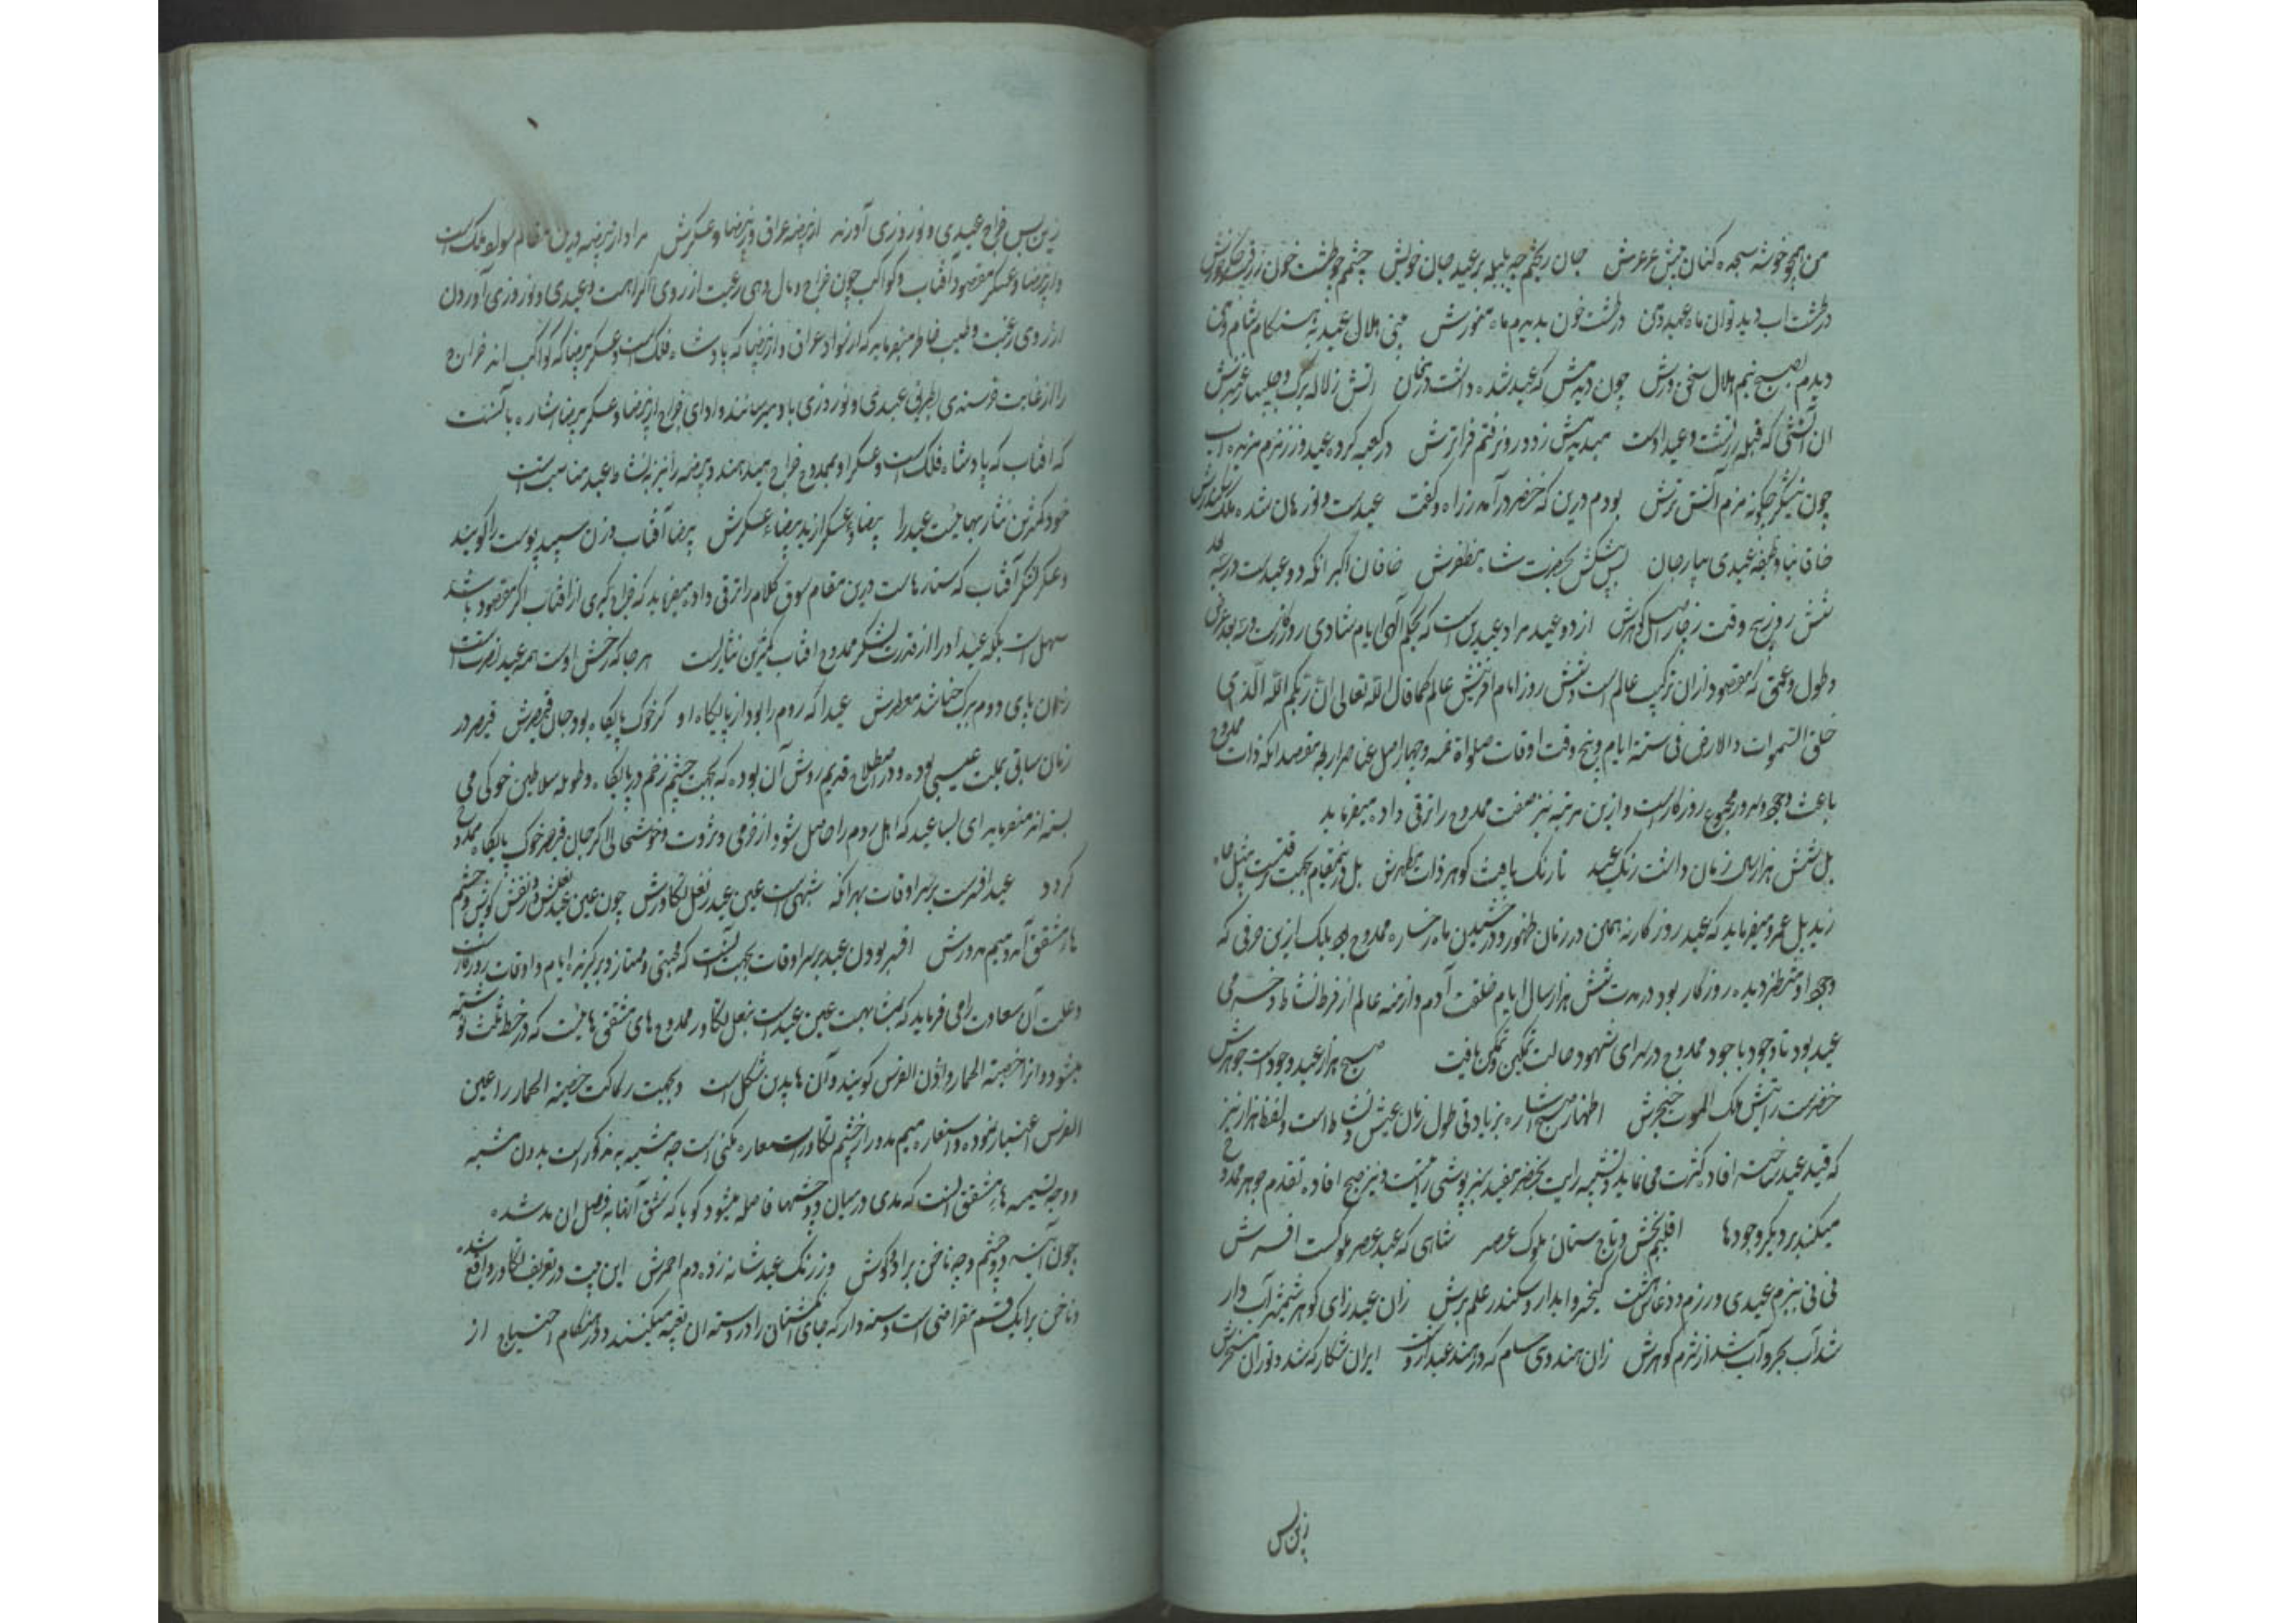 من همچو خوشه سجده کنان پیش عرعرش جان ریختم چو بلبله بر عید جان خویش چشم چو طشت خون ز رقیب
در طشت آب دید توان ماه عید و من در طشت خون بدیدم ماه منورش بینی هلال عید به هنگام شام و من
دیدم بصبح نیم هلال سخن ورش چون دیدمش که عید شده داشت در نهان آتش ز لاله برگ و چلیپا ز عنبرش
آن آتشی که قبله زردشت و عید اوست میدیدمش ز دور و نرفتم فراترش در کعبه کرده عید و ز زمزم مزیده آب
چون نیشکر چگونه مزم آتش ترش بودم درین که خضر در آمد ز راه و گفت عیدست و نورهان شده ملک سکندرش
خاقانیا وظیفه عیدی بیار جان پس پیشکش بحضرت شاه مظفرش خاقان اکبر آنکه دو عیدست در سه بعد
شش روز و پنج وقت ز چار اصل گوهرش از دو عید مراد عیدین است که بحکم الهی ایام شادی روزگارست و سه بعد عرض
و طول و عمق که مقصود از آن ترکیب عالم است و شش روز ایام آفرینش عالم کما قال الله تعالی ان ربکم الله الذی
خلق السموات والارض فی ستة ایام و پنج وقت اوقات صلواة خمسه و چهار اصل عناصر اربعه مقصد آنکه ذات ممدوح
باعث وجود و سرور مجموع روزگارست و ازین مرتبه نیز صفت ممدوح را ترقی داده میفرماید
بل شش هزار سال زمان داشت رنگ عید تا رنگ یافت گوهر ذات مطهرش بل درینمقام بجهت ترقیست مثل جاء
زید بل عمرو میفرماید که عید روزگار نه همین در زمان ظهور و درخشیدن ماه رخساره ممدوح بود بلک ازین حرفی که
وجود او منتظر دیده روزگار بود در مدت شش هزار سال ایام خلقت آدم و ازمنه عالم از فرط نشاط و خرمی
عید بود تا وجود با جود ممدوح در سرای شهود حالت تمکین و تمکن یافت صبح هزار عید وجودست جوهرش
خضرست رایتش ملک الموت خنجرش اظهار صبح اشاره بزیادتی طول زمان عیش و نشاط است و لفظ هزار نیز
که قید عید ساخته افاده کثرت می نماید و تشبیه رایت بخضر مفید سبز پوشی رایت و نیز صبح افاده تقدم جوهر ممدوح
میکند بر دیگر وجودها اقلیم بخش و تاج ستان ملوک عصر شاهی که عید عصر ملوکست افسرش
نی نی ببزم عیدی و رزم و دغاش هست کیخسرو ابدار و سکندر علم برش زان عید زای گوهر شمشیر آب دار
شد آب بحر و آب شد از شرم گوهرش زان هندوی سام که در هند عید ازوست ایران شکار که شد و توران مسخرش
زین پس
زین پس خراج عیدی و نوروزی آورند از بیضه عراق و ز بیضا و عسکرش مراد از بیضه درین مقام سواد ملک است
و از بیضا و عسکر مقصود آفتاب و کواکب چون خراج و مال دهی رعیت از روی اکراهست و عیدی و نوروزی آوردن
از روی رغبت و طیب خاطر میفرماید که از سواد عراق و از بیضا که پادشاه فلک است و عسکر بیضا که کواکب اند خراج
را از غایت بطریق عیدی و نوروزی باو میرسانند و ادای خراج از بیضا و عسکر بیضا اشاره بآنست
که آفتاب که پادشاه فلک است و عسکر او بممدوح خراج میدهند و بیضه را نیز به نشاط عید مناسبت است
خود کمترین نثار بهائیست عید را بیضا و عسکر از ید بیضاء عسکرش بیضا آفتاب و زن سپید پوست را گویند
و عسکر لشکر آفتاب که ستارهاست درین مقام سوق کلام را ترقی داده میفرماید که خراج گیری از آفتاب اگر مقصود باشد
سهل است بلکه عید او را از قدرت لشکر ممدوح آفتاب کمترین نثارست هر جا که رخش اوست همه عید نصرت است
زمان سابق بملت عیسی بوده و در اصطلاح قدیم روش آن بوده که بجهت چشم زخم در پایگاه و طویله سلاطین خوکی می
بسته اند میفرماید ای بسا عید که اهل روم را حاصل شود از خرمی و ثروت و خوشحالی اگر جان قیصر خوک پایگاه ممدوح
گردد عید افسرست بر سر اوقات بهر آنکه شبهیست عین عید ز نعل تکاورش چون عین عید نعلش و نقش گوش و چشم
هاء مشقق آمد و میم مدورش افسر بودن عید بر سر اوقات بجهت آنست که مجتبی و ممتاز و برگزیده ایام و اوقات روزگارست
و علت آن سعادت را می فرماید که مشابهت عین عیدست بنعل تکاور ممدوح های مشقق هائیست که در خط ثلث نوشته
میشود و آنرا خصیة الحمار و اذن الفرس گویند و آن ها بدین شکل است و بجهت رکاکت خصیة الحمار را عین
الفرس اعتبار نموده و استعاره میم مدور از چشم تکاور استعاره مکنی است چه مشبه به مذکور است بدون مشبه
و وجه تسمیه هاء مشقق آنست که مدی در میان دو چشمها فاصله میشود گویا که شق آنها به فصل آن مد شده
چون آینه دو چشم و چو ناخن برا دو گوش وز رنگ عید شانه زده دم احمرش این بیت در تعریف تکاور واقع شده
و ناخن برا یک قسم مقراضی است دسته دار که جای انگشتان را در دسته آن تعبیه میکنند و در هنگام احتیاج از